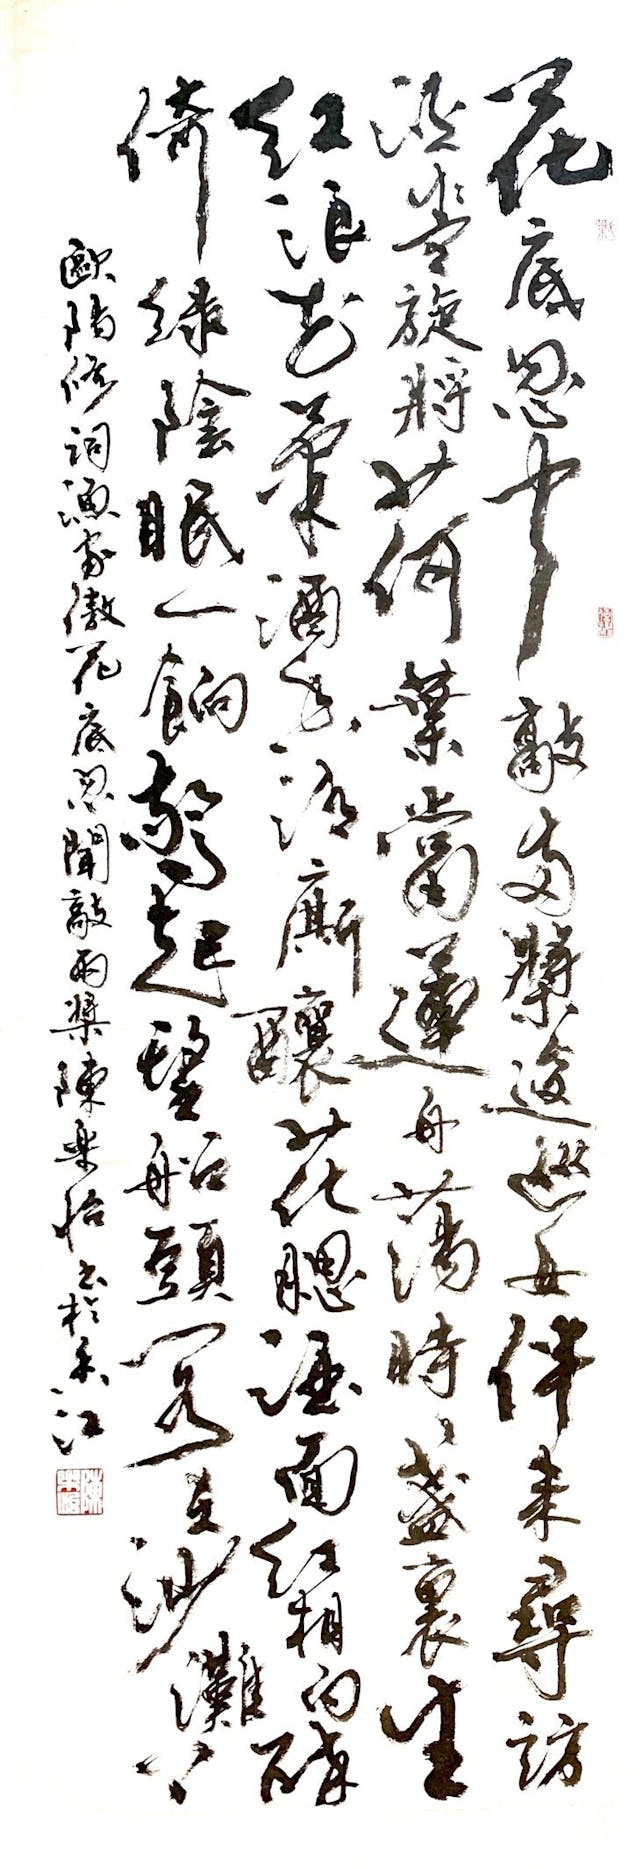 花底忽聞敲兩槳逡巡女伴来尋訪
酒盞旋將荷葉當蓮舟蕩時〻盞裏生
紅浪花氣酒香清廝釀花腮酒面紅相向醉
倚綠陰眠一餉驚起望船頭閣在沙灘上
歐陽修詞漁家傲花底忽聞敲兩槳陳樂怡書於香江